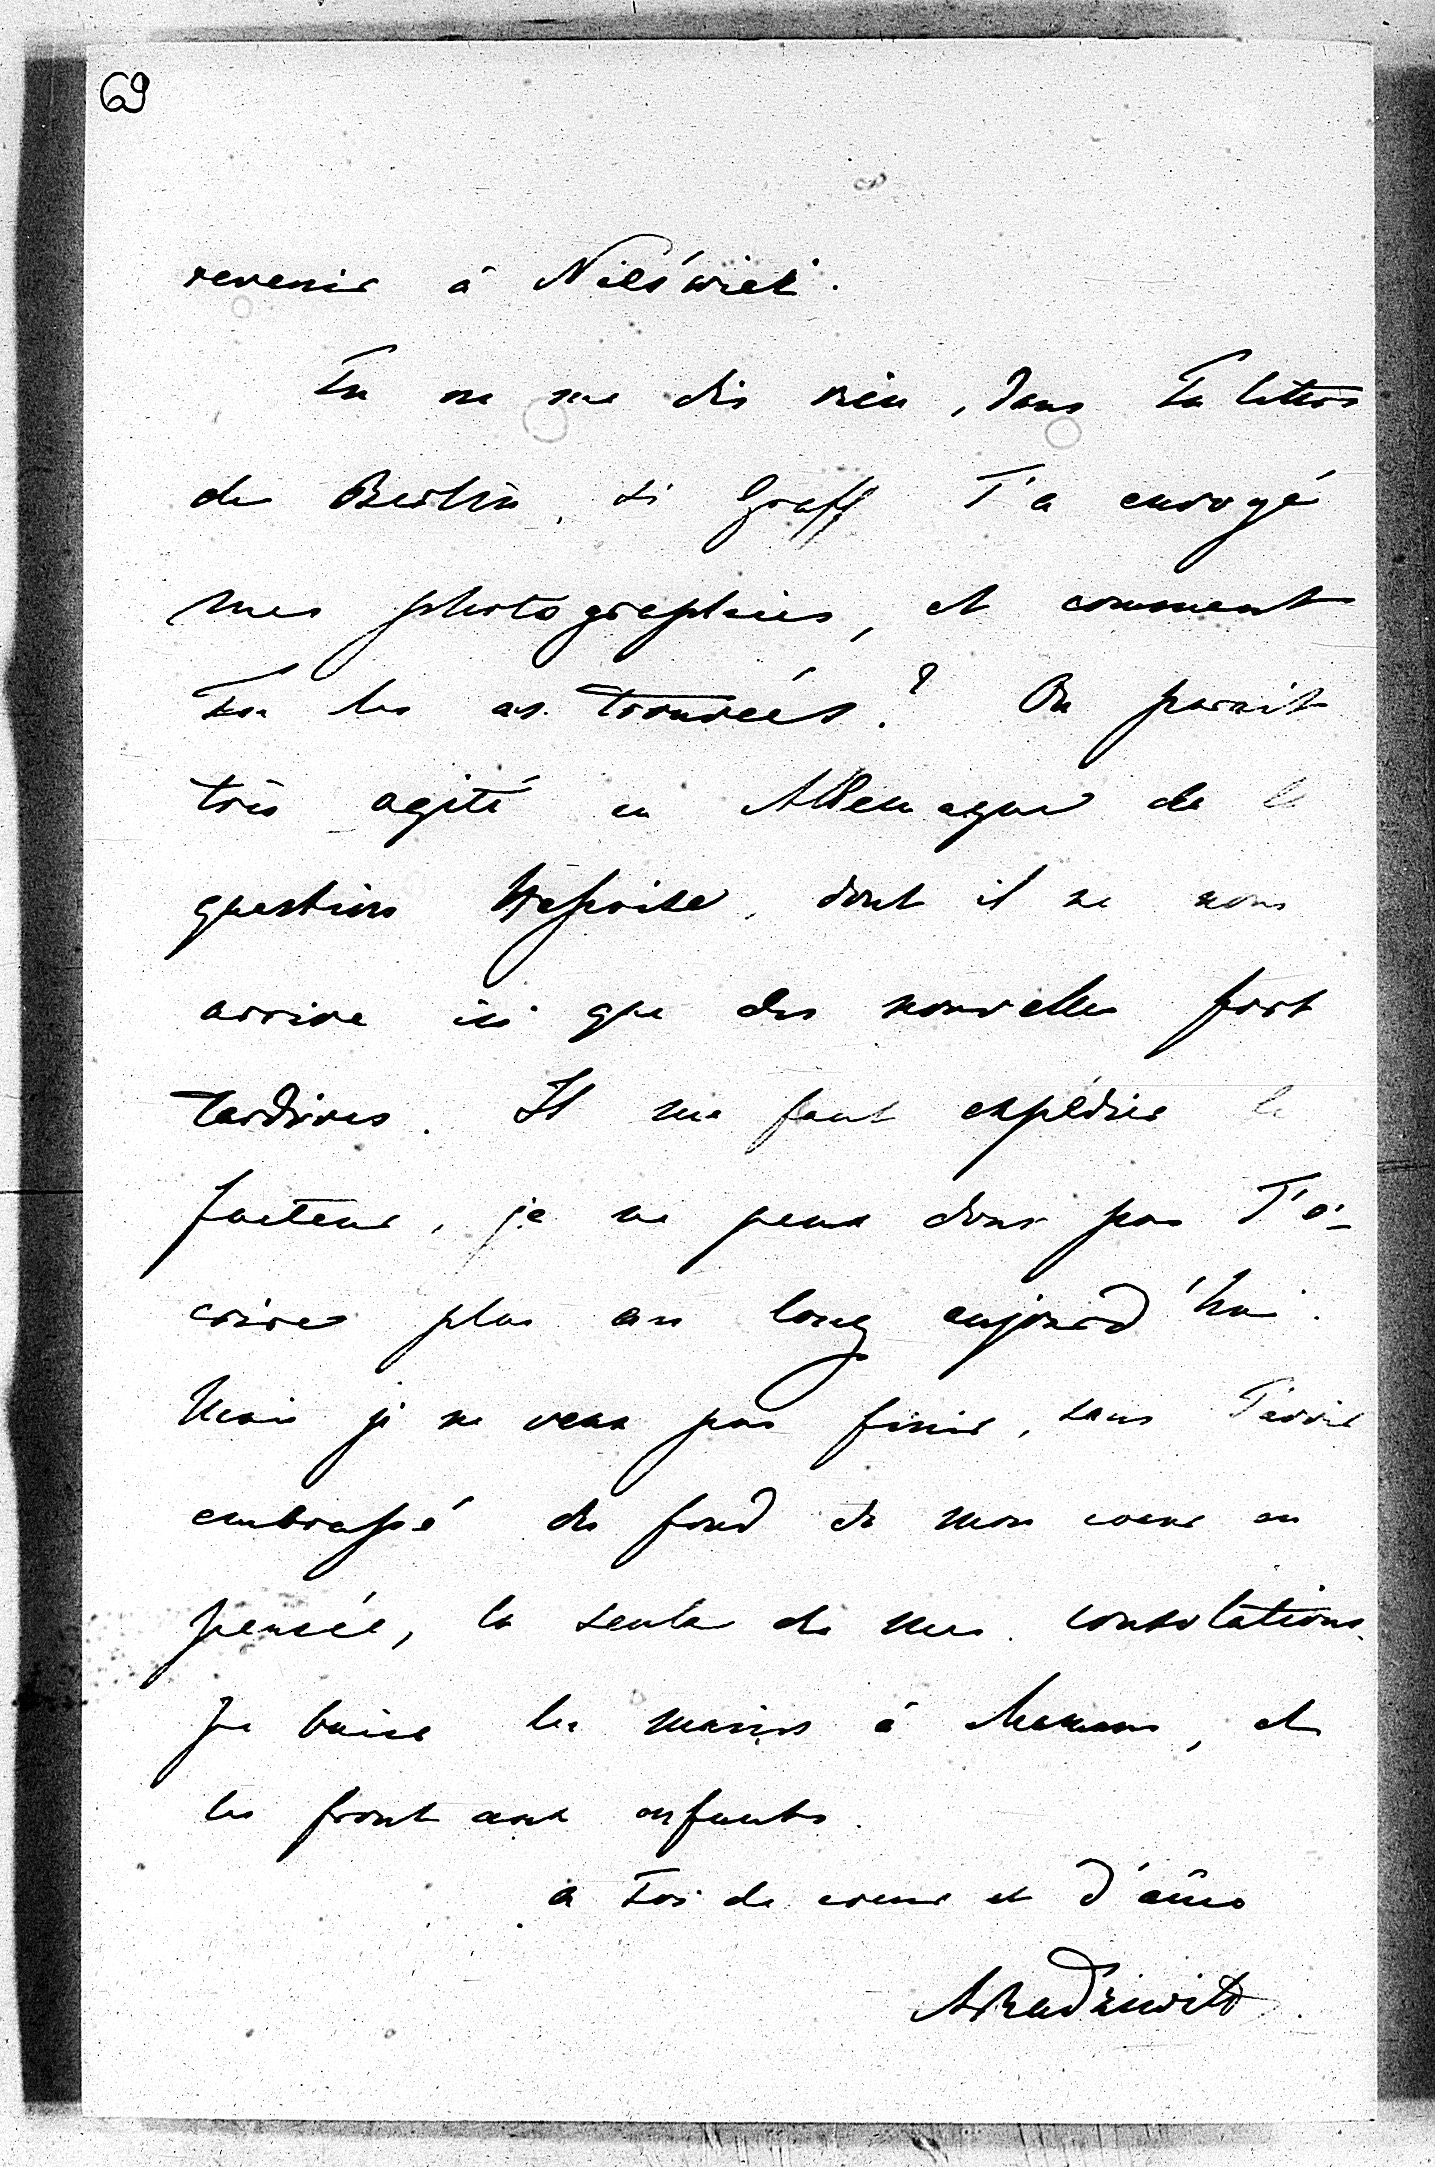 69
revenir à Nieśwież.
Tu ne me dis rien, dans Ta lettre
de Berlin, si Graff T'a envoyé
mes photographies, et comment
Tu les as trouvées? On parait
très agité en Allemagne de la
question, dont il ne nous
arrive ici que des nouvelles fort
tardives. Il me faut expédier le
facteur, je ne peux donc pas T'é-
crire plus au long aujourd'hui.
Mais je ne veux pas finir, sans T'avoir
embrassé du fond de mon coeur en
pensée, la seule de mes consolations.
Je baise les mains à Maman, et
les front aux enfants.
a Toi de coeur et d'âme
ARadziwiłł